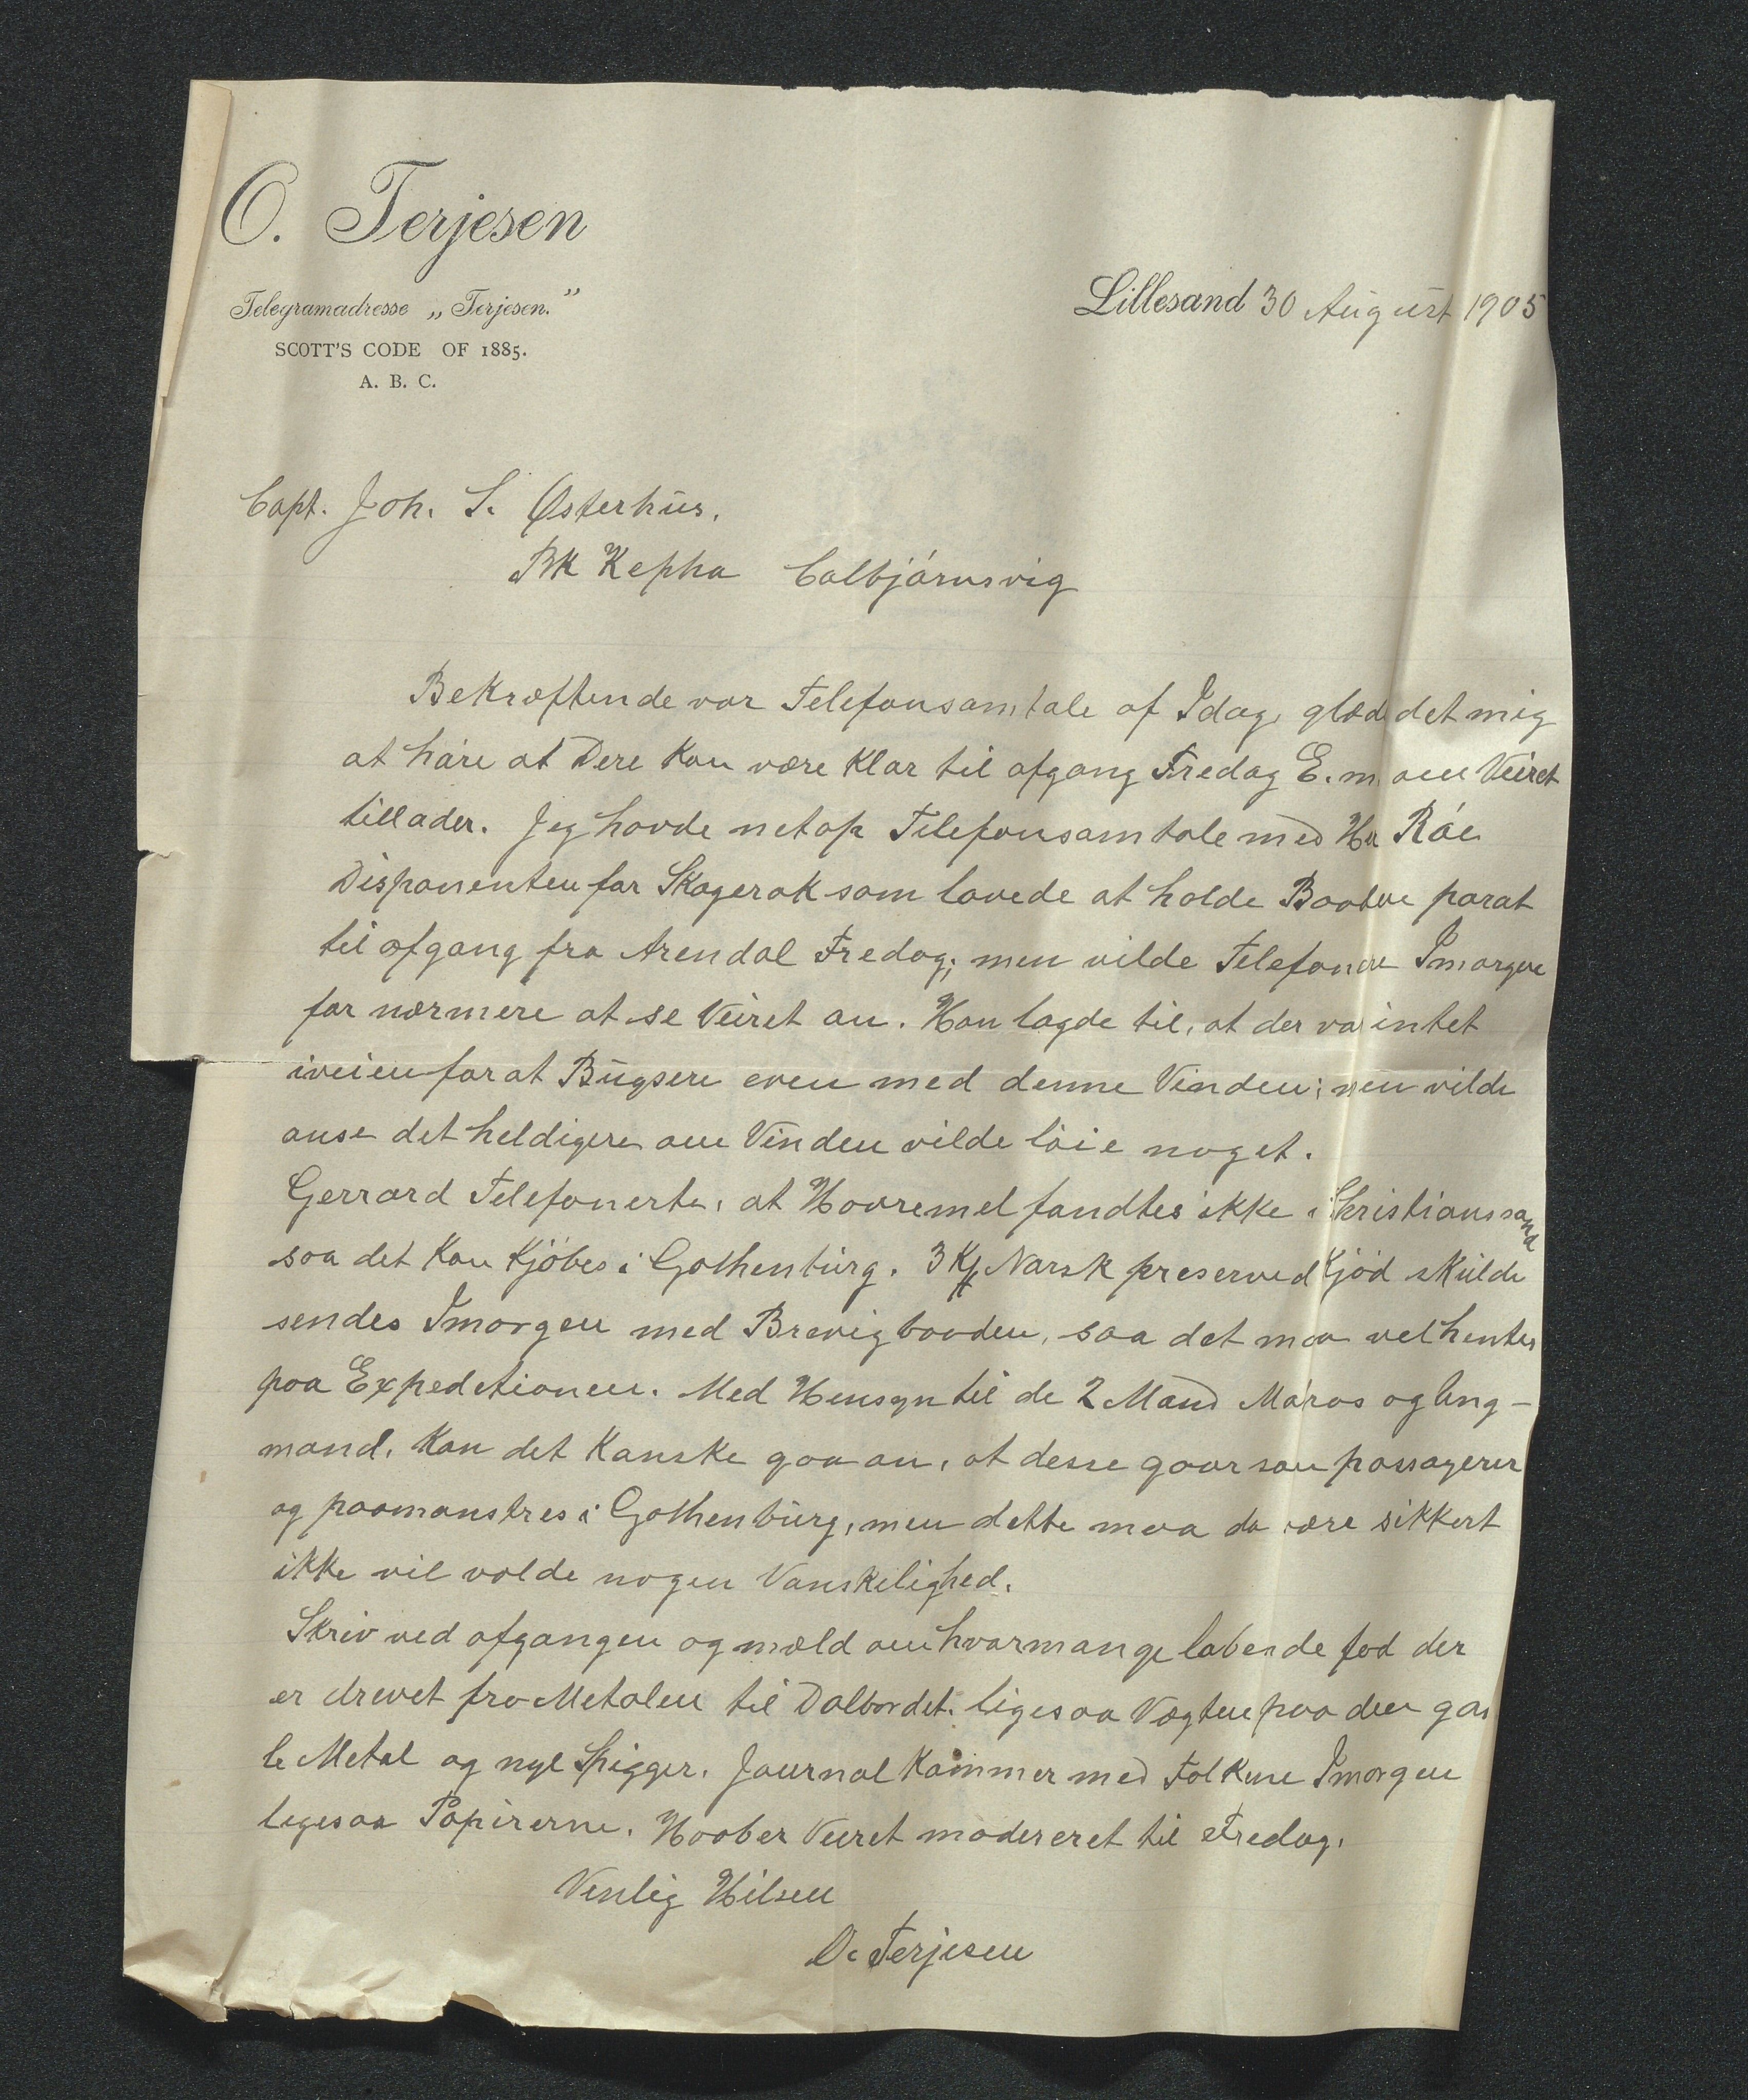 O. Terjesen
Telegramadresse „Terjesen."
SCOTT'S CODE OF 1885.
A. B. C.
Lillesand 30 August 1905
Capt. Joh. S. Østerhus.
Bk Kepha Calbjørnsvig
Bekræftende vor Telefonsamtale af Idag, glæd det mig
at høre at Dere kan være klar til afgang Fredag E.m. om Veiret
tillader. Jeg havde netop Telefonsamtale med Her Røe
Disponenten for Skagerak som lovede at holde Baaden parat
til afgang fra Arendal Fredag; men vilde Telefonere Imorgen
for nærmere at se Veiret an. Han lagde til, at der var intet
iveien for at Bugsere even med denne Vinden; men vilde
anse det heldigere om Vinden vilde løie noget.
Gerrard Telefonerte, at Havremel fandtes ikke i Christianssand
saa det kan kjøbes i Gothenburg. 3 Ks Norsk preserved Kjød skulde
sendes Imorgen med Brevigbaaden, saa det maa vel hentes
paa Expeditionen. Med Hensyn til de 2 Mand Maros og Ung-
mand, kan det kanske gaa an, at desse gaar som passagerer
og paamønstres i Gothenburg, men dette maa da være sikkert
ikke vil volde nogen Vanskelighed.
Skriv ved afgangen og mæld om hvormange løbende fod der
er drevet fra Metalen til Dolbordet. ligesaa Vægten paa den gam
le Metal og nye Spigger. Journal kommer med Folkene Imorgen
ligesaa Papirerne. Haaber Veiret modereret til Fredag.
Venlig Hilsen
O. Terjesen